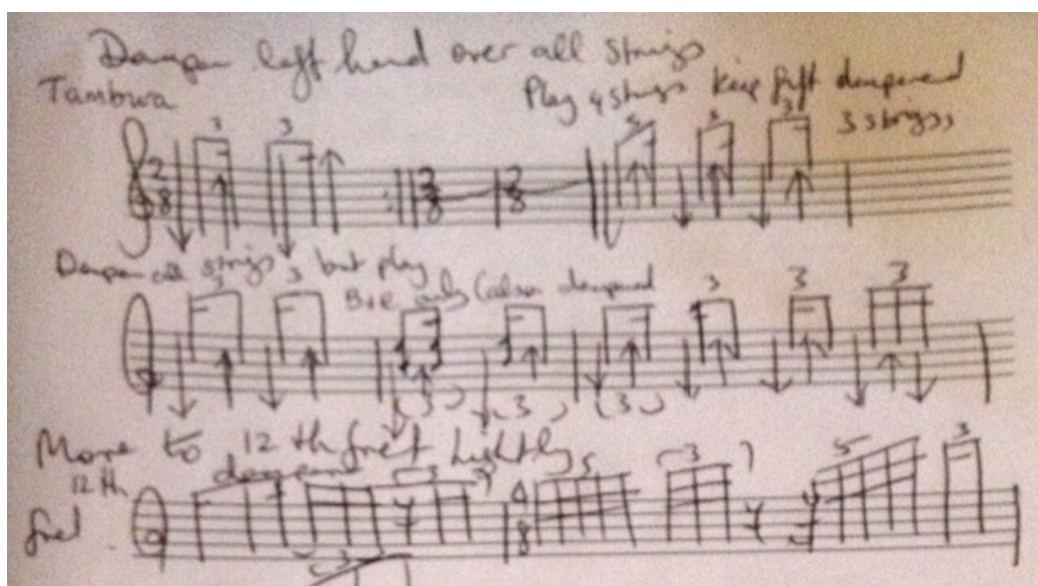 Dampen left hand over all strings
Tambura
Play 4 strings Keep left dampened
3 strings,
3 3 5 3 3
2 8 2 8 2 8
Dampen all strings but play
B+E only (also dampened
3 3 3 3 3
(3) (3) (3)
Move to 12th fret lightly
dampened
12th
fret
3 5 3 5 3
4 8
3